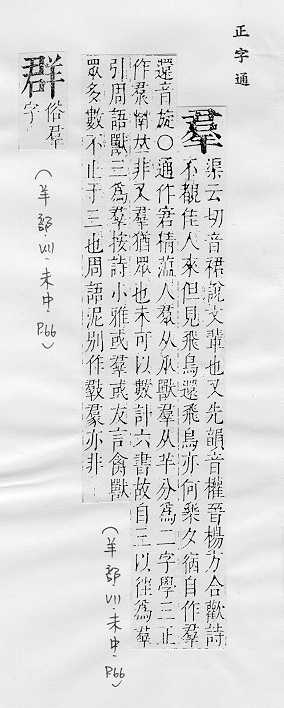 正字通
羣
渠云切音裙說文輩也又先韻音權晉楊方合歡詩
不覩佳人來但見飛鳥還飛鳥亦何樂夕宿自作羣
還音旋○通作宭精薀人羣从㐺獸羣从羊分爲二字學三正
作羣闕丛非又羣猶眾也未可以數計六書故自三以往爲羣
引周語獸三爲羣按詩小雅或羣或友言禽獸
眾多數不止于三也周語泥別作㪊羣亦非
(羊部.VII.未中.P66)
群
俗羣
字
(羊部.VII.未中.P66)